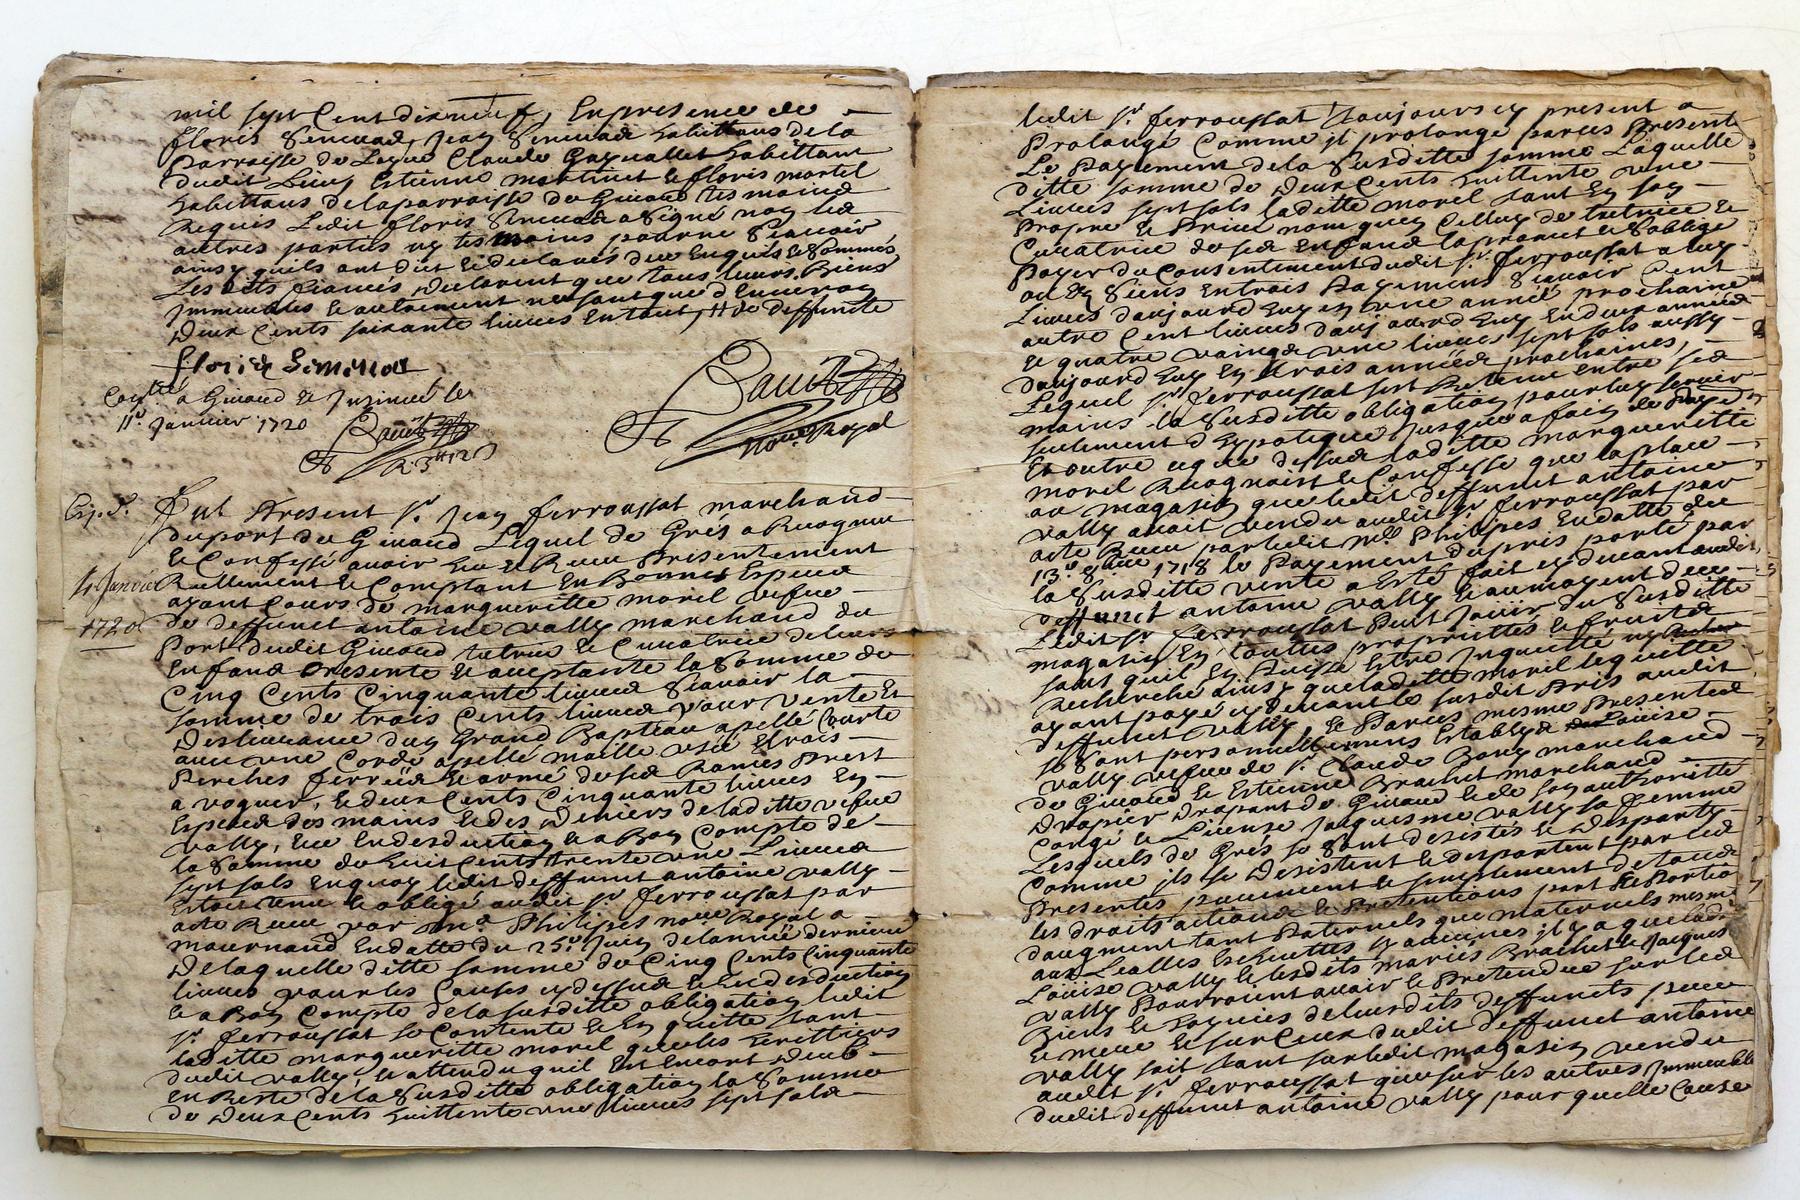 mil sept Cent dixneuf, En presence de
floris Simınad, Jean habittans de la
Parroisse de Claude habittant
dudit Lieu, Estienne martinet & floris martel
habittans de la parroisse de Givord tesmoins
Requis Ledit floris a signé non les
autres parties ny tesmoins pour ne sçavoir
ainsy quils ont dit & declarés de ce Enquis & sommés
Les dits fiancés declarent que tous leurs Biens
Immeubles & autrement ne sont que d'Environ
Deux Cents soixante livres En tout, // de deffunte
floris
a Givord &
11e Janvier 1720
no.re Royal
Fut Present Sr. Jean ferroussat marchand
du port de Givord Lequel de Grés a Recognu
& Confessé avoir Eu & Receu Presentement
Reellement & Comptant En Bonnes Especes
4e Janvier
ayant Cours de margueritte morel vefve
1720
de deffunct antoine vally marchand du
Port dudit Givord tutrice & Curatrice de leurs
Enfans Presente & acceptante la somme de
Cinq Cents Cinquante livres sçavoir la
somme de trois Cents livres pour vente Et
Deslivrance d'un Grand Bapteau apellé Courte
avec une Corde apellé maille usée & trois
Perches ferrées & armé de ses Rames Prest
a voguer, & deux Cents Cinquante livres En
Especes des mains & des Deniers de laditte vefve
vally, & ce En desduction & a Bon Compte de
la somme de huit Cents trente une Livres
sept sols En quoy ledit deffunct antoine vally
Estoit tenu & obligé audit Sr ferroussat par
acte Receu par me. Philipes no.re Royal a
mournand En datte du 25e Juin de lannée derniere
De laquelle ditte somme de Cinq Cents Cinquante
livres pour les Causes cy dessus & En desduction
& a Bon Compte de la susditte obligation ledit
Sr. ferroussat se Contente & En quitte tant
laditte margueritte morel que les heritiers
dudit vally, & attendu quil Est Encort Deub
En Reste de la susditte obligation la somme
de Deux Cents huittente une livres sept sols
ledit Sr. ferroussat toujours cy present a
Prolongé Comme il prolonge par ces Presentes
Le Payement de la susditte somme Laquelle
ditte somme de Deux Cents huittente une
Livres sept sols laditte morel tant En son
Propre & Privé nom qu'en Celluy de tutrice &
Curatrice de ses Enfans la promet & s'oblige
Payer du Consentement dudit Sr. ferroussat a luy
ou es siens En trois Payemens sçavoir Cent
Livres d'aujourd'huy en une année prochaine
autre Cent livres d'aujourd'huy En deux années
& quatre vaingt une livres sept sols aussy
d'aujourd'huy En trois années prochaines,
Lequel Sr. ferroussat s'est Retenue Entre ses
mains la susditte obligation pour luy servir
seulement d'Ypotique Jusques a fin de Paye
Et outre ce que dessus laditte margueritte
morel Recognoist & Confesse que la place
ou magasin que ledit deffunct antoine
vally avoit vendu audit Sr. ferroussat par
acte Receu par ledit me Philipes En datte du
13e 1718 le Payement du pris porté par
la susditte vente a Esté fait cy devant audit
deffunct antoine vally & au moyent de ce
Ledit Sr. ferroussat Peut Jouir du susditte
magasin En toutes proprietés & fruits
sans quil En Puisse Estre Inquietté ny
Recherché ainsy que laditte morel lequitte
ayant payé cy devant le susdit Pris audit
deffunct vally, & Par ces mesme Presentes
se sont personnellemens Establys Louise
vally vefve de Sr. Claude Bony marchand
de Givord & Estienne Brachet marchand
Drapier Drapant de Givord & de son authoritté
Congé & License Jacquesme vally sa femme
Lesquels de Grés se sont desistés & Desparty
Comme ils se Desistent & despartent par les
Presentes purement & simplement de tous
les droits actions & Pretentions part & Portion
d'augment tant Paternels que maternels mesme
aux Lealles Eschuttes sy aucunes il y a que lad.
Louise vally & lesdits mariés Brachet & Jacques
vally Pourroient avoir & Pretendre sur les
Biens & hoiries de leurs dits deffuncts pere
& mere & sur Ceux dudit deffunct antoine
vally soit tant sur ledit magasin vendu
audit Sr. ferroussat que sur les autres Immeubles
dudit deffunct antoine vally pour quelle Cause